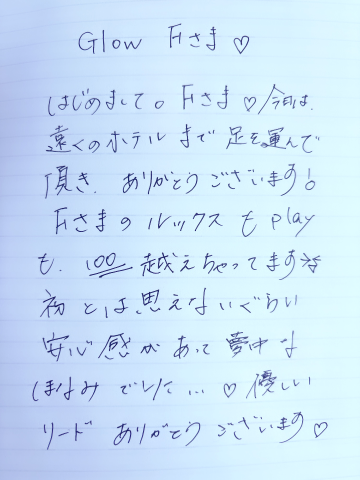 Glow Fさま♡
はじめまして。Fさま♡今日は、
遠くのホテルまで足を運んで
頂き、ありがとうございます!
Fさまのルックスもplay
も、100越えちゃってます
初とは思えないぐらい
安心感があって夢中な
ほなみでした…♡優しい
リードありがとうございます♡